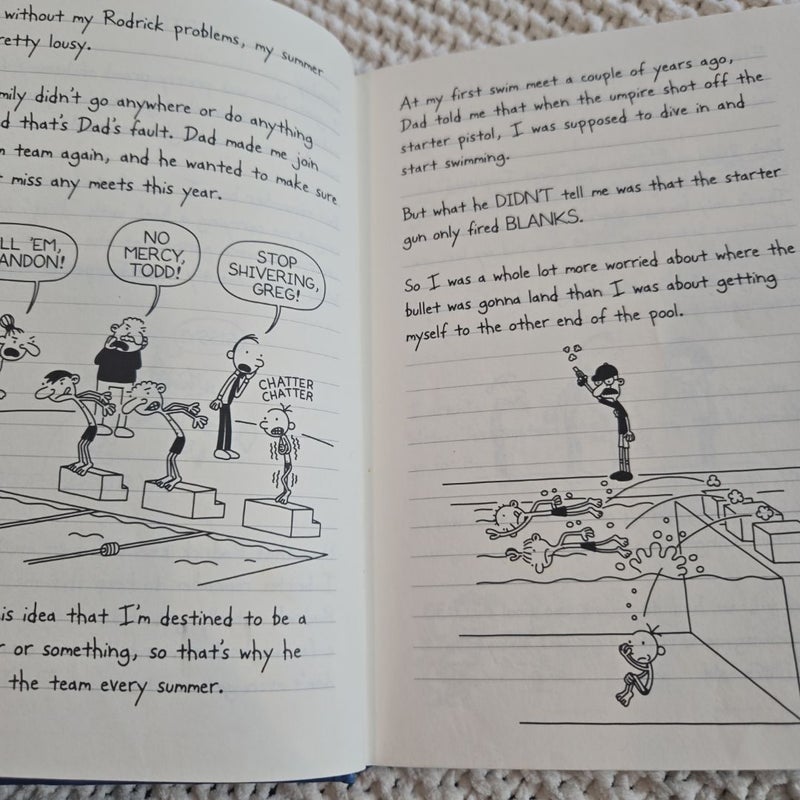 without my Rodrick problems, my summer
retty lousy.
mily didn't go anywhere or do anything
d that's Dad's fault. Dad made me join
team again, and he wanted to make sure
miss any meets this year.
LL 'EM,
ANDON!
NO
MERCY,
TODD!
STOP
SHIVERING,
GREG!
CHATTER
CHATTER
is idea that I'm destined to be a
or something, so that's why he
the team every summer.
At my first swim meet a couple of years ago,
Dad told me that when the umpire shot off the
starter pistol, I was supposed to dive in and
start swimming.
But what he DIDN'T tell me was that the starter
gun only fired BLANKS.
So I was a whole lot more worried about where the
bullet was gonna land than I was about getting
myself to the other end of the pool.